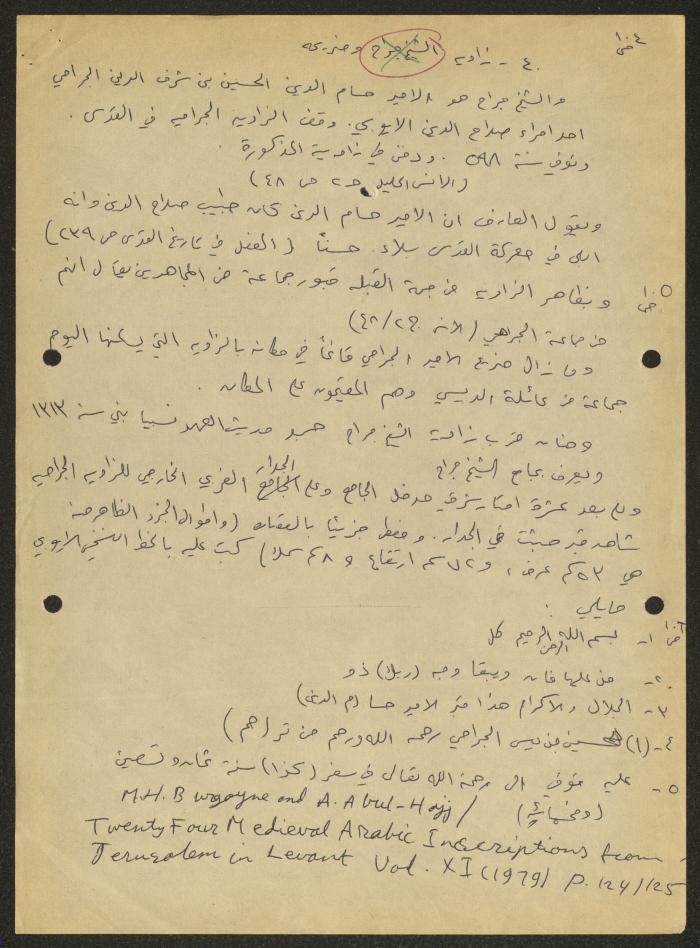 ٤ - زاوية الشيخ جراح وضريحه
والشيخ جراح هو الامير حسام الدين الحسين بن شرف الدين الجراحي
احد امراء صلاح الدين الايوبي. وقف الزاوية الجراحية في القدس .
وتوفي سنة ٥٩٨ . ودفن في زاويته المذكورة .
(الانس الجليل حـ٢ ص ٤٨)
ويقول العارف ان الامير حسام الدين كان طبيب صلاح الدين وانه
ابلى في معركة القدس بلاء حسناً (المفصل في تاريخ القدس ص ٢٣٩)
وبظاهر الزاوية من جهة القبلة قبور جماعة من المجاهدين يقال انهم
من جماعة الجراحي (الانس حـ٢/٤٨)
وما زال ضريح الامير الجراحي قائماً في مكانه بالزاوية التي يسكنها اليوم
جماعة من عائلة الديسي وهم المقيمون على المكان .
وهناك قرب زاوية الشيخ جراح مسجد حديث العهد نسبيا بني سنة ١٣١٣
ويعرف بجامع الشيخ جراح
وعلى بعد عشرة امتار شرقي مدخل الجامع وعلى الجدار الغربي الخارجي للزاوية الجراحية
شاهد قبر مثبت في الجدار. ومغطى جزئيا بالقصارة (واطوال الجزء الظاهر منه
هي ٥٣سم عرض، و٧٢سم ارتفاع و ٨سم سمك) كتب عليه بالخط النسخي الايوبي
مايلي :
١- بسم الله الرحمن الرحيم كل
٢- من عليها فان ويبقا وجه (ربك) ذو
٣- الجلال والاكرام هذا قبر الامير حسا(م الدين)
٤-(ا) لحسين بن عيسى الجراحي رحمه الله ورحم من تر(حم)
٥- عليه توفي الى رحمة الله تعالى في صفر (كذا) سنة ثمان وتسعين
(وخمسمائة)
M.H. Burgoyne and A. Abul-Hajj /
Twenty Four Medieval Arabic Inscriptions from
Jerusalem in Levant Vol. XI (1979) P. 124/125